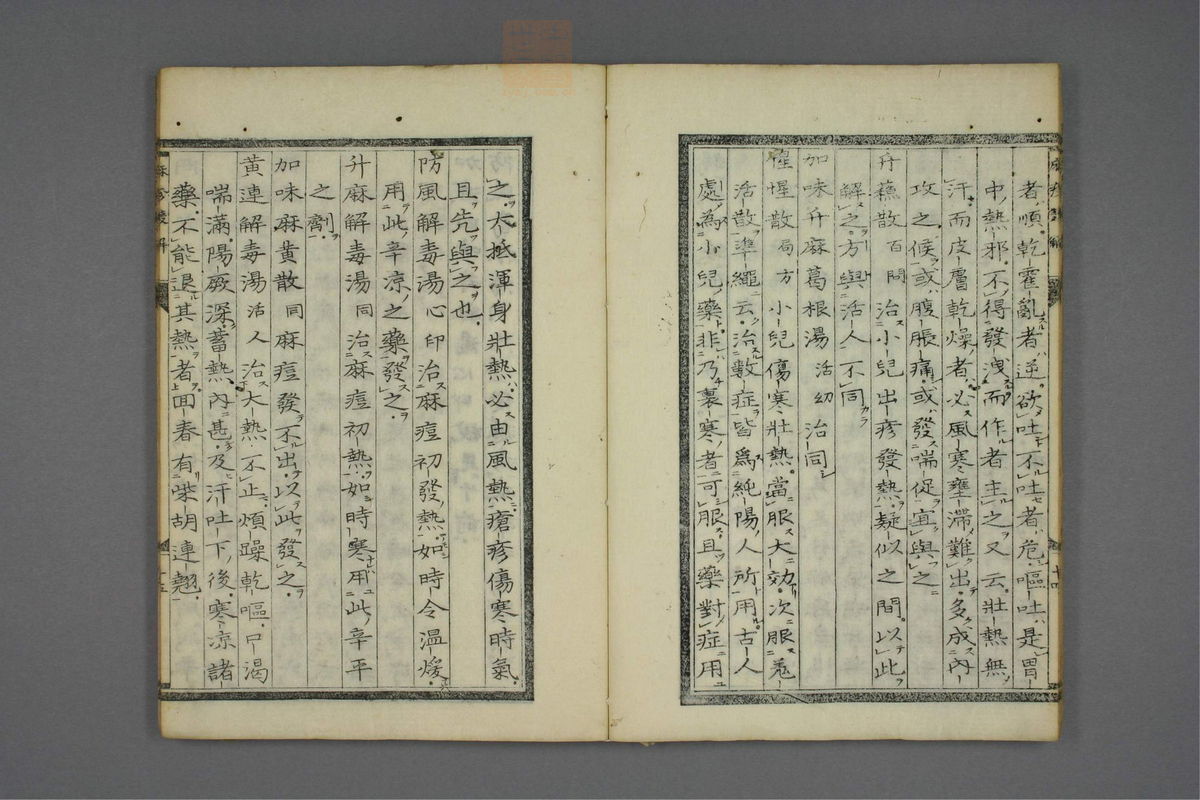 者順乾霍亂者逆欲吐不吐者危嘔吐是胃
中熱邪不得發洩而作者主之又云壯熱無
汗而皮層乾燥者必風寒壅滯難出多成內
攻之候或腹脹痛或發喘促宜與之
升蘇散 百問 治小兒出疹發熱疑似之間以此
解之方與活人不同
加味升麻葛根湯 活幼 治同
惺惺散 局方 小兒傷寒壯熱當服大効次服
活散準繩云治數症皆為純陽人所用古人
處為小兒藥非乃裏寒者可服且藥對症用
之大抵渾身壯熱必由風熱瘡疹傷寒時氣
且先與之也
防風解毒湯 心印 治麻痘初發熱如時令溫煖
用此辛涼之藥發之
升麻解毒湯 同 治麻痘初熱如時寒用此辛平
之劑
加味麻黄散 同 麻痘發不出以此發之
黄連解毒湯 活人 治大熱不止煩躁乾嘔口渴
喘滿陽厥深蓄熱內甚及汗吐下後寒涼諸
藥不能退其熱者回春有柴胡連翹
十四
十五